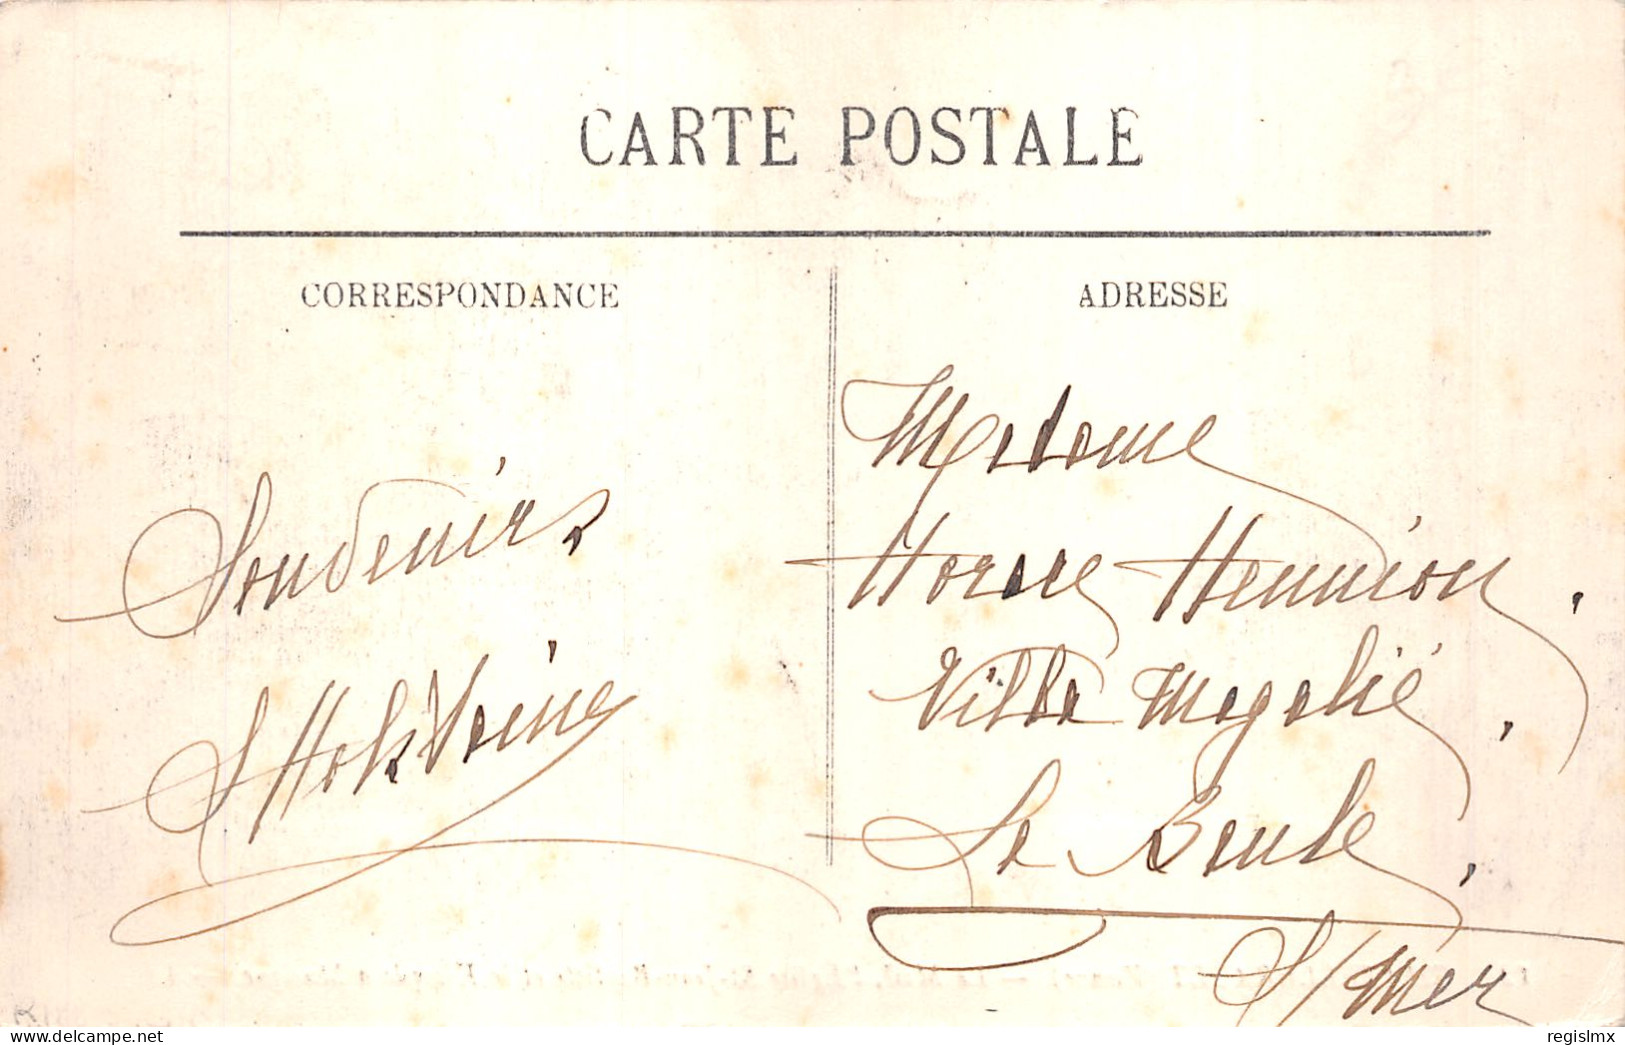 CARTE POSTALE
CORRESPONDANCE
ADRESSE
Souvenirs
Madame
Horace Hennion,
Villa Magalie,
La Baule,
S/Mer
delcampe.net
regislmx